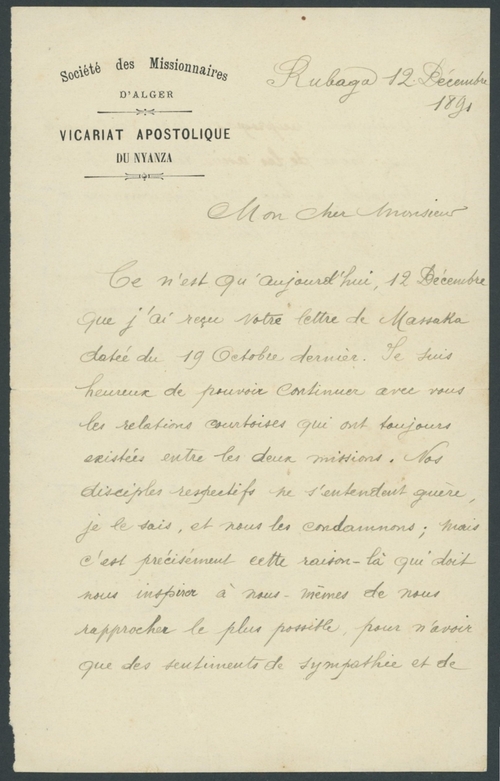 Société des Missionnaires
D'ALGER
VICARIAT APOSTOLIQUE
DU NYANZA
Rubaga 12 Décembre
1891
Mon cher monsieur
Ce n'est qu'aujourd'hui, 12 Décembre
que j'ai reçu votre lettre de Massaka
datée du 19 Octobre dernier. Je suis
heureux de pouvoir continuer avec vous
les relations courtoises qui ont toujours
existées entre les deux missions. Nos
disciples respectifs ne s'entendent guère,
je le sais, et nous les condamnons; mais
c'est précisément cette raison-là qui doit
nous inspirer à nous-mêmes de nous
rapprocher le plus possible, pour n'avoir
que des sentiments de sympathie et de